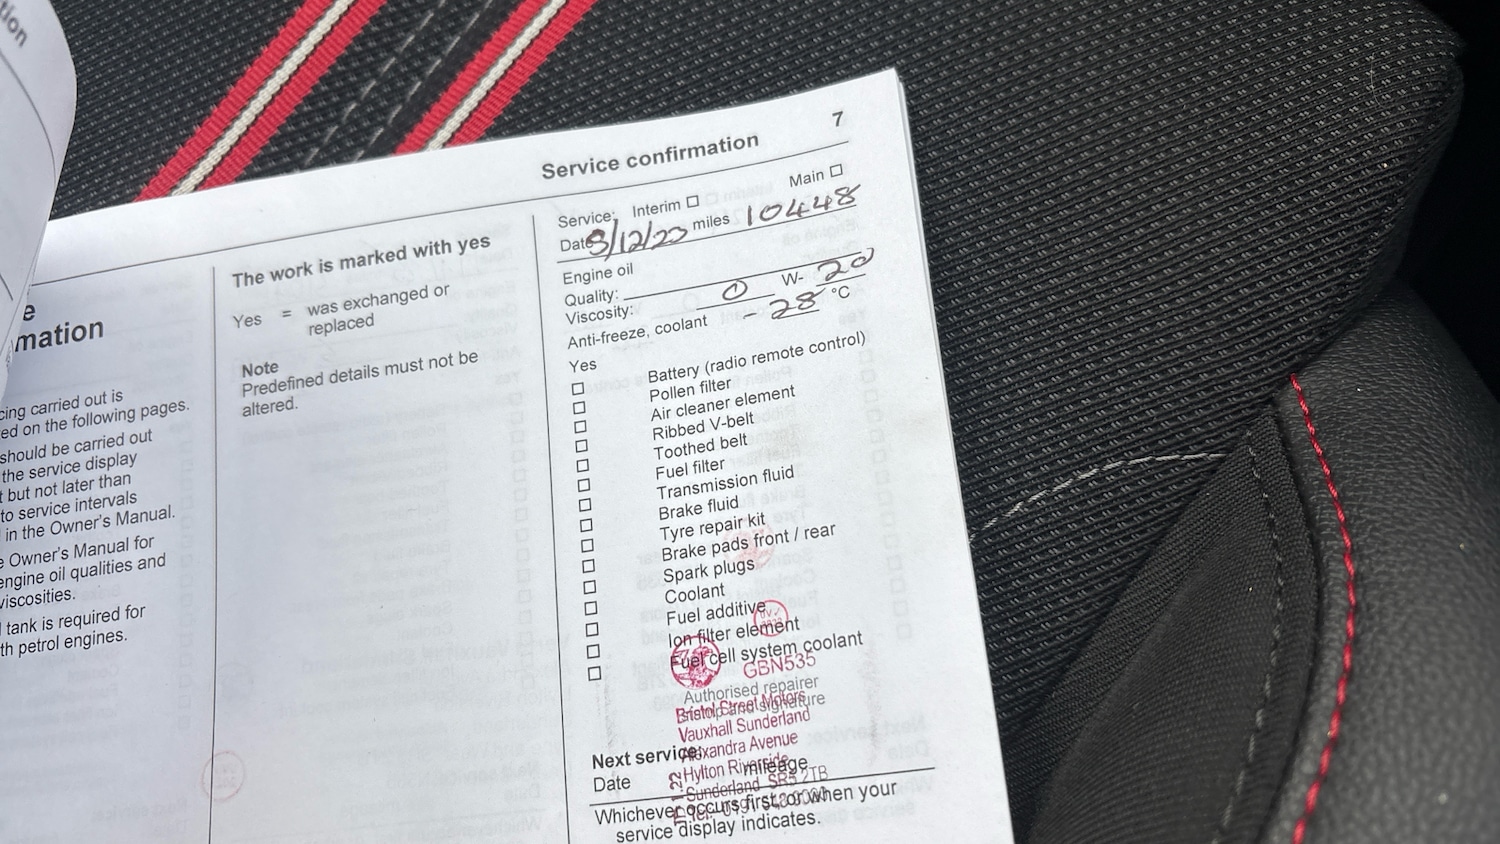 tion
e
mation
cing carried out is
ed on the following pages.
should be carried out
the service display
t but not later than
to service intervals
in the Owner's Manual.
e Owner's Manual for
engine oil qualities and
viscosities.
l tank is required for
th petrol engines.
The work is marked with yes
Yes = was exchanged or
replaced
Note
Predefined details must not be
altered.
Service confirmation
7
Service: Interim □ Main □
Date miles 10448
Engine oil
Quality:
Viscosity: 0 W- 20
Anti-freeze, coolant - 28 °C
Yes
□ Battery (radio remote control)
□ Pollen filter
□ Air cleaner element
□ Ribbed V-belt
□ Toothed belt
□ Fuel filter
□ Transmission fluid
□ Brake fluid
□ Tyre repair kit
□ Brake pads front / rear
□ Spark plugs
□ Coolant
□ Fuel additive
□ Ion filter element
□ Fuel cell system coolant
GBN535
Authorised repairer
stamp and signature
Bristol Street Motors
Vauxhall Sunderland
Alexandra Avenue
Hylton Riverside
Sunderland SR5 2TB
Next service:
Date mileage
Whichever occurs first, or when your
service display indicates.